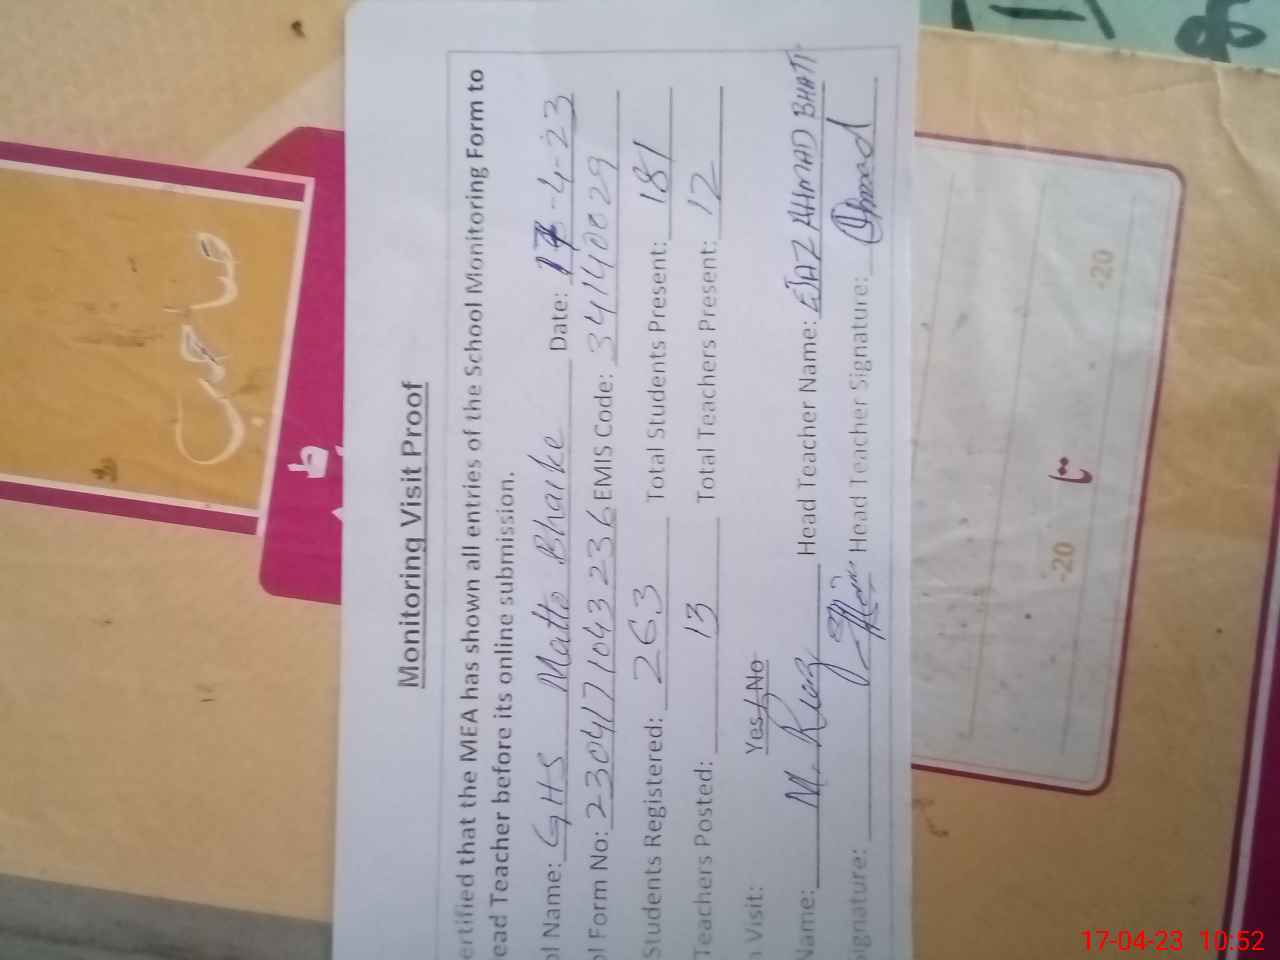 Monitoring Visit Proof
ertified that the MEA has shown all entries of the School Monitoring Form to
ead Teacher before its online submission.
ol Name: GHS Matto Bhaike Date: 17-4-23
ol Form No: 2304171043236 EMIS Code: 34140029
Students Registered: 263 Total Students Present: 181
Teachers Posted: 13 Total Teachers Present: 12
n Visit: Yes / No
Name: M. Riaz Head Teacher Name: EJAZ AHMAD BHATTI
ignature: Head Teacher Signature: Ahmad
-20 تا -20
17-04-23 10:52